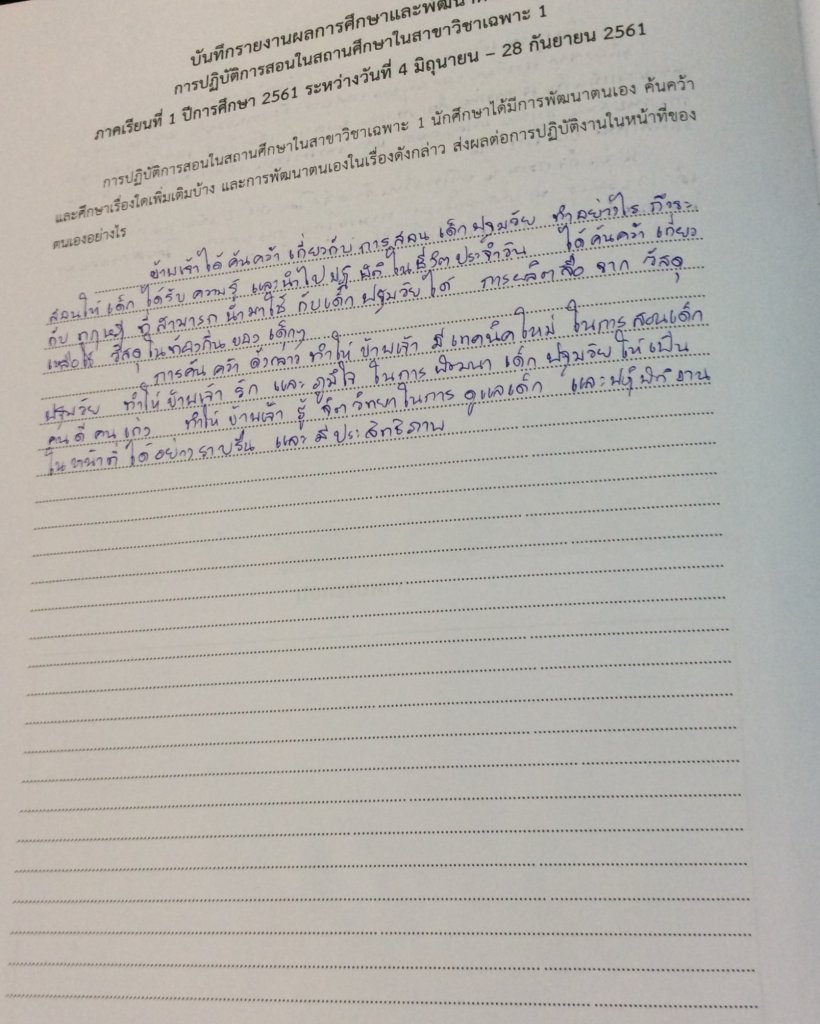 บันทึกรายงานผลการศึกษาและพัฒนา
การปฏิบัติการสอนในสถานศึกษาในสาขาวิชาเฉพาะ 1
ภาคเรียนที่ 1 ปีการศึกษา 2561 ระหว่างวันที่ 4 มิถุนายน – 28 กันยายน 2561
การปฏิบัติการสอนในสถานศึกษาในสาขาวิชาเฉพาะ 1 นักศึกษาได้มีการพัฒนาตนเอง ค้นคว้า
และศึกษาเรื่องใดเพิ่มเติมบ้าง และการพัฒนาตนเองในเรื่องดังกล่าว ส่งผลต่อการปฏิบัติงานในหน้าที่ของ
ตนเองอย่างไร
ข้าพเจ้าได้ค้นคว้า เกี่ยวกับการสอน เด็กปฐมวัย ทำอย่างไร ถึงจะ
สอนให้เด็ก ได้รับความรู้ และนำไปปฏิบัติ ในชีวิตประจำวัน ได้ค้นคว้า เกี่ยว
กับ ทฤษฎี ที่สามารถนำมาใช้ กับเด็กปฐมวัยได้ การผลิตสื่อ จาก วัสดุ
เหลือใช้ วัสดุในท้องถิ่น ของ เด็กๆ
การค้นคว้า ดังกล่าว ทำให้ ข้าพเจ้า มีเทคนิคใหม่ ในการสอนเด็ก
ปฐมวัย ทำให้ข้าพเจ้า รัก และ ภูมิใจ ในการพัฒนา เด็กปฐมวัยให้เป็น
คนดี คนเก่ง ทำให้ ข้าพเจ้า รู้ จิตวิทยาในการ ดูแลเด็ก และปฏิบัติงาน
ในหน้าที่ ได้อย่างราบรื่น และมีประสิทธิภาพ